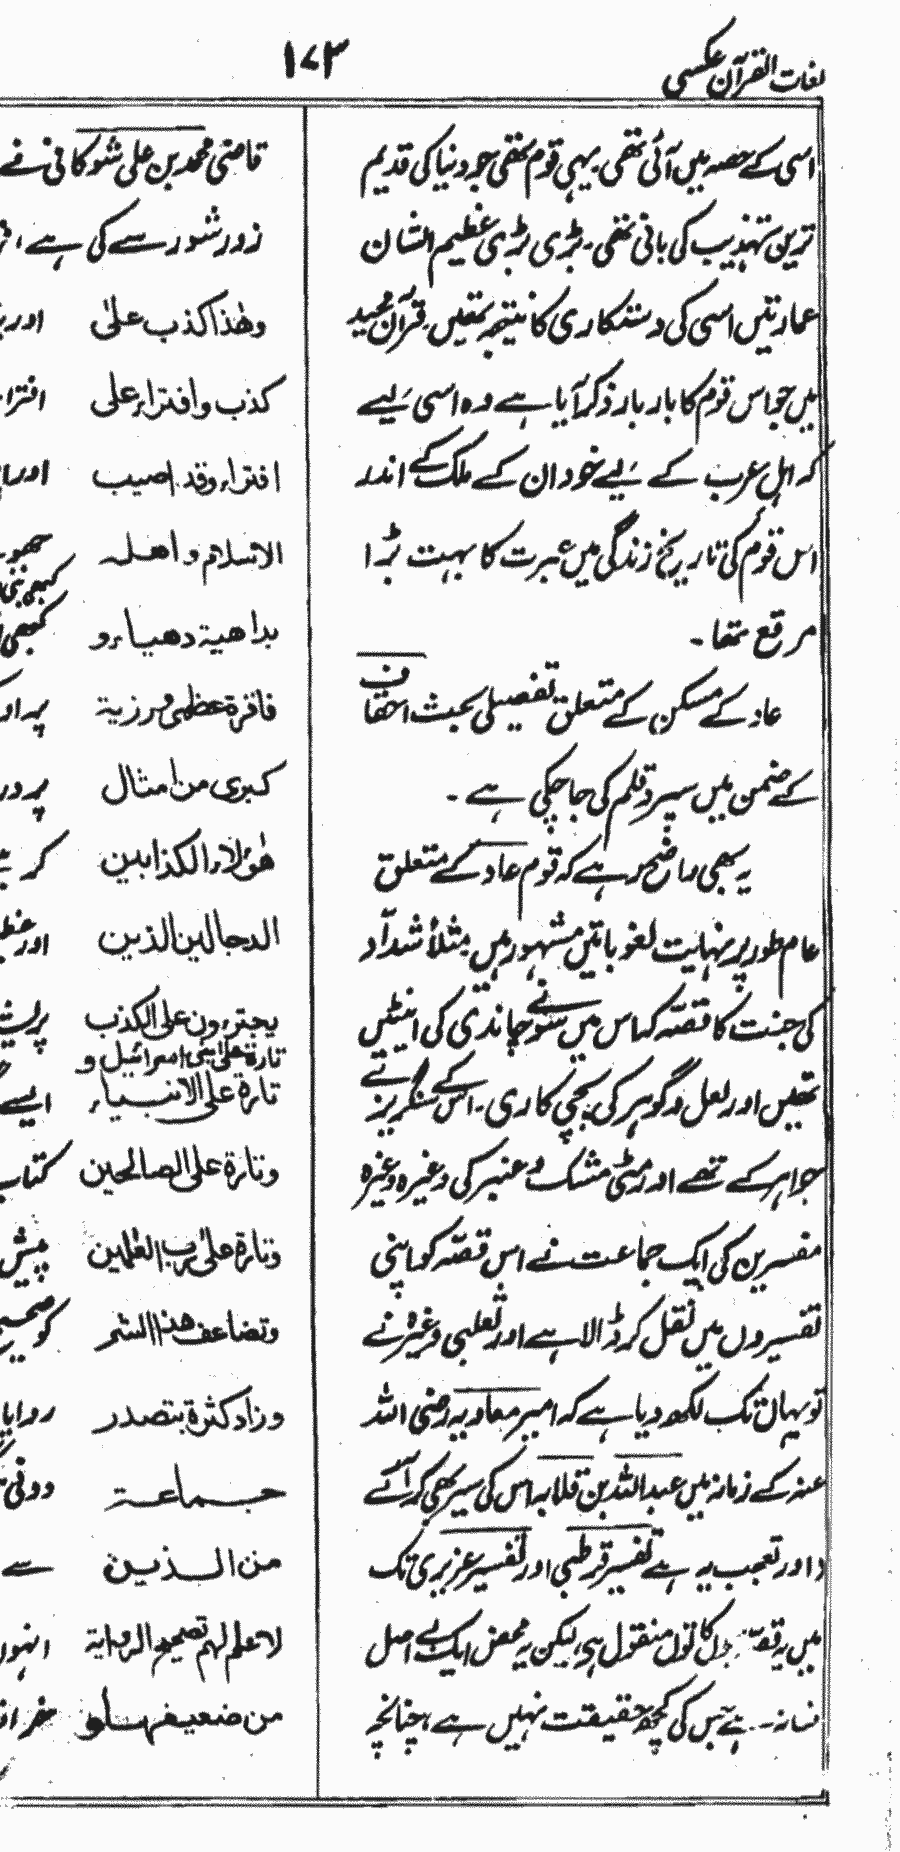 لغات القرآن عکسی
۱۷۳
اسی کے حصہ میں آئی تھی۔ یہی قوم تھی جو دنیا کی قدیم
ترین تہذیب کی بانی تھی۔ بڑی بڑی عظیم الشان
عمارتیں اسی کی دستکاری کا نتیجہ تھیں۔ قرآن مجید
میں جو اس قوم کا بار بار ذکر آیا ہے وہ اسی لیے
کہ اہل عرب کے لیے خود ان کے ملک کے اندر
اس قوم کی تاریخ زندگی میں عبرت کا بہت بڑا
مرقع تھا۔
عاد کے مسکن کے متعلق تفصیلی بحث احقاف
کے ضمن میں سپرد قلم کی جا چکی ہے۔
یہ بھی واضح رہے کہ قوم عاد کے متعلق
عام طور پر نہایت لغو باتیں مشہور ہیں مثلاً شداد
کی جنت کا قصہ کہ اس میں سونے چاندی کی اینٹیں
تھیں اور لعل و گوہر کی پچی کاری۔ اس کے سنگریزے
جواہر کے تھے اور مٹی مشک و عنبر کی وغیرہ وغیرہ
مفسرین کی ایک جماعت نے اس قصہ کو اپنی
تفسیروں میں نقل کر ڈالا ہے اور ثعلبی وغیرہ نے
تو یہاں تک لکھ دیا ہے کہ امیر معاویہ رضی اللہ
عنہ کے زمانہ میں عبد اللہ بن قلابہ اس کی سیر بھی کر آئے
اور تعجب یہ ہے تفسیر قرطبی اور تفسیر عزیزی تک
میں یہ قصہ کا قول منقول ہی، لیکن یہ محض ایک بے اصل
فسانہ ہے جس کی کچھ حقیقت نہیں ہے، چنانچہ
قاضی محمد بن علی شوکانی نے
زور شور سے کی ہے،
وهٰذا كذب على
كذب وافتراء على
افتراء وقد اصيب
الاسلام و اهله
بداهية دهياء و
فاقرة عظمى و رزية
كبرى من امثال
هٰؤلاء الكذابين
الدجالين الذين
يجترءون على الكذب
تارة على بنى اسرائيل و
تارة على الانبياء
وتارة على الصالحين
وتارة على رب العلمين
وتضاعف هذا الشر
وزاد كثرة بتصدر
جماعة
من الذين
لا علم لهم تصحيح الرواية
من ضعيفها ولو